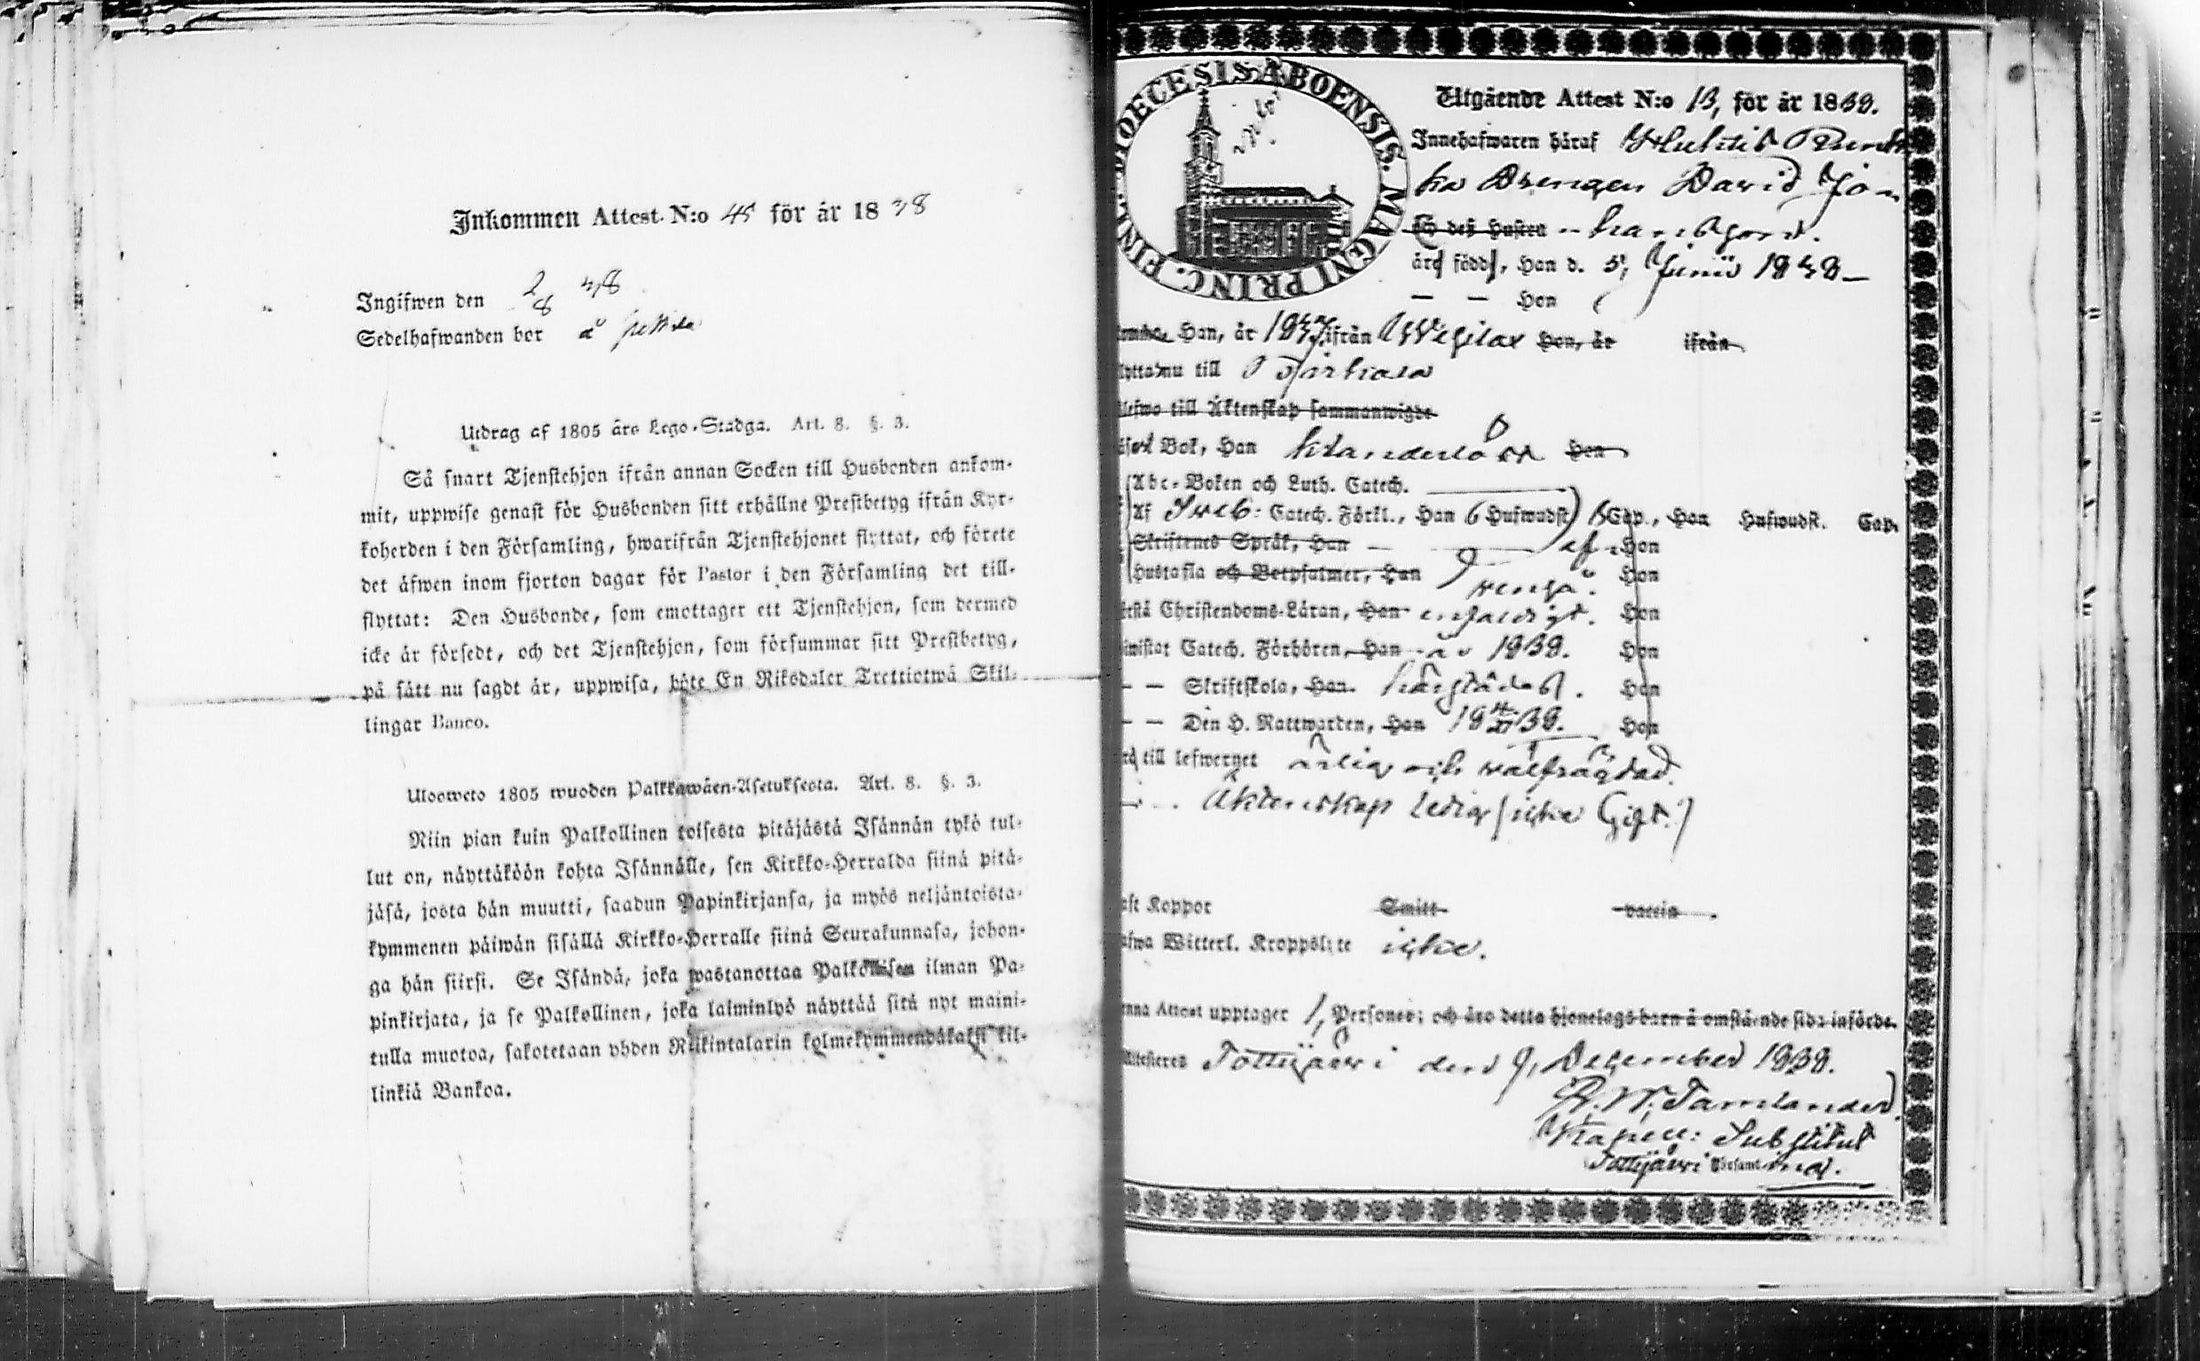 Inkommen Attest N:o 45 för år 1838
Ingifwen den 2/8 38
Sedelhafwanden bor å
Utdrag af 1805 års Lego-Stadga. Art. 8. §. 3.
Så snart Tjenstehjon ifrån annan Socken till Husbonden ankom-
mit, uppwise genast för Husbonden sitt erhållne Prestbetyg ifrån Kyr-
koherden i den Församling, hwarifrån Tjenstehjonet flyttat, och förete
det äfwen inom fjorton dagar för Pastor i den Församling det till-
flyttat: Den Husbonde, som emottager ett Tjenstehjon, som dermed
icke är försedt, och det Tjenstehjon, som försummar sitt Prestbetyg,
på sätt nu sagdt är, uppwisa, böte En Riksdaler Trettiotwå Skil-
lingar Banco.
Ulosweto 1805 wuoden Palkkawäen-Asetuksesta. Art. 8. §. 3.
Niin pian kuin Palkollinen toisesta pitäjästä Isännän tykö tul-
lut on, näyttäköön kohta Isännälle, sen Kirkko-Herralda siinä pitä-
jäsä, josta hän muutti, saadun Papinkirjansa, ja myös neljäntoista-
kymmenen päiwän sisällä Kirkko-Herralle siinä Seurakunnasa, johon-
ga hän siirsi. Se Isändä, joka wastanottaa Palkollisen ilman Pa-
pinkirjata, ja se Palkollinen, joka laiminlyö näyttää sitä nyt maini-
tulla muotoa, sakotetaan yhden Riikintalarin kolmekymmendäkaksi kil-
linkiä Bankoa.
DIOECESIS ABOENSIS. MAGNI PRINC. FINL.
Utgående Attest N:o 13, för år 1839.
Innehafwaren häraf
Drengen David
och deß hustru
äro född, Han d. 5, Junii
— — Hon
Han, år ifrån Wesilax Hon, år ifrån
flyttar nu till
Lefwa till Äktenskap sammanwigde
Bok, Han Hon
Abc-Boken och Luth. Catech.
Af Sveb: Catech. Förkl., Han 6 Hufwudst. Cap., Hon Hufwudst. Cap.
Skriftenes Språk, Han — af Hon
Hustafla och Botpsalmer, Han Hon
Christendoms-Läran, Han enfaldigt. Hon
Catech. Förhören, Han år 1839. Hon
— — Skriftskola, Han Hon
— — Den H. Nattwarden, Han Hon
till lefwernet ärlig och wälfrägdad.
Äktenskap Ledig (icke Gift.)
Koppor Smitt vaccin
Witterl. Kroppslyte icke.
Attest upptager 1, Personer; och äro detta hjonelags barn å omstående sida införde.
Attesteres Tottijärwi den 9, December 1839.
Tamlander
Kapell: Substitut
Tottijärwi Församling.